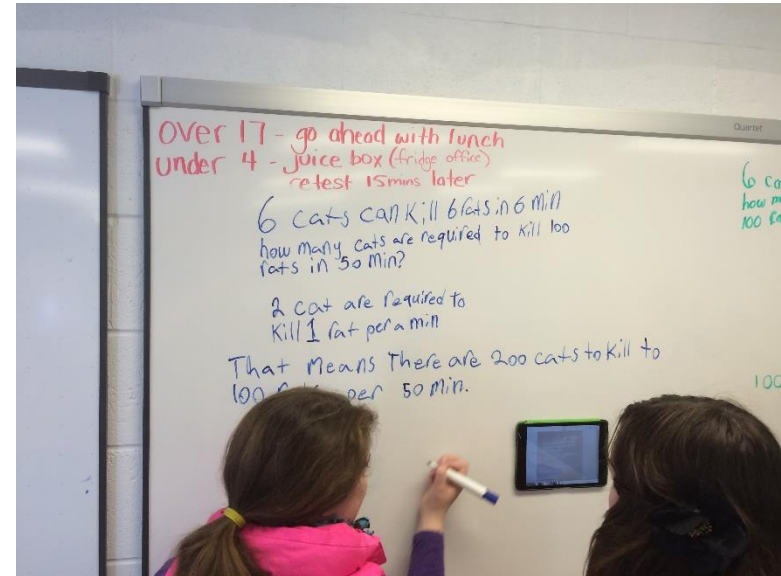 Over 17 - go ahead with lunch
under 4 - juice box (fridge office)
retest 15mins later
Quartet
6 cats can kill 6 rats in 6 min
how many cats are required to kill 100
rats in 50 min?
2 cat are required to
kill 1 rat per a min
That means There are 200 cats to kill to
100 per 50 min.
6 ca
how m
100
100